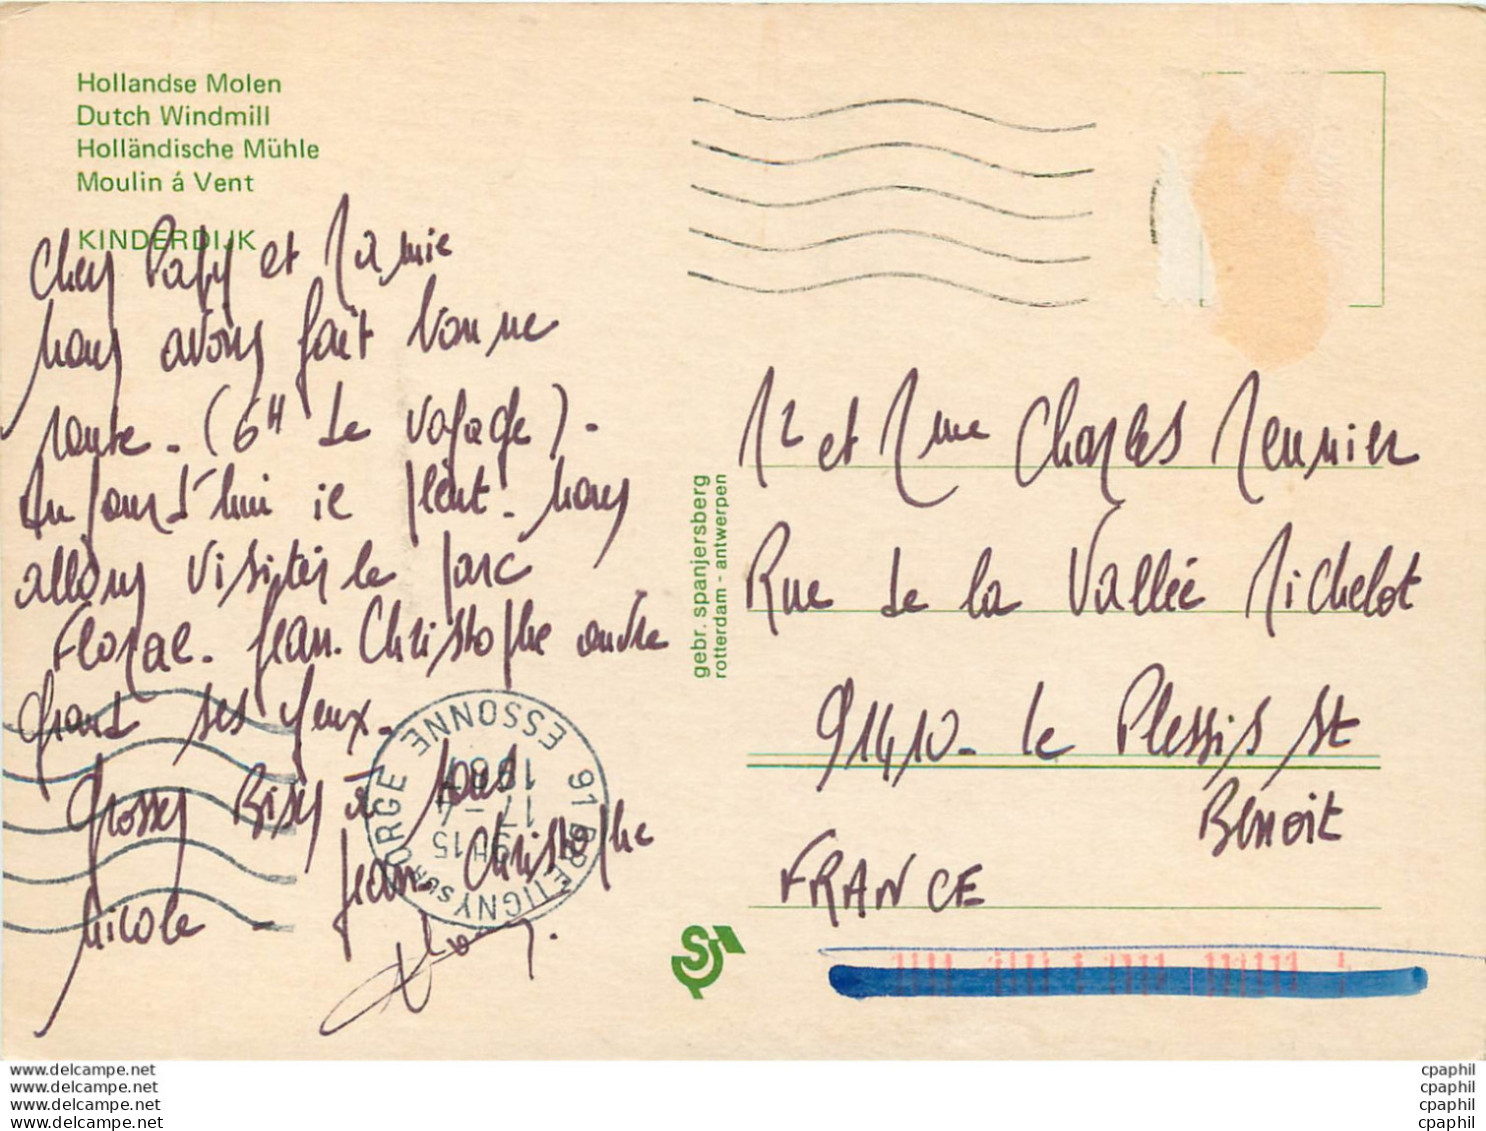 Hollandse Molen
Dutch Windmill
Holländische Mühle
Moulin á Vent
KINDERDIJK
Chers Papy et Mamie
nous avons fait bonne
route - (6H de voyage) -
Aujourd'hui il pleut - nous
allons visiter le parc
Floral - Jean-Christophe ouvre
grand ses yeux -
Grosses Bises à tous
Jean Christophe
Nicole -
gebr. spanjersberg
rotterdam - antwerpen
Mr et Mme Charles Meunier
Rue de la Vallée Michelot
91410 - le Plessis St
Benoit
FRANCE
91 BRETIGNY SUR ORGE ESSONNE
9H15
17 -
198
S
www.delcampe.net
www.delcampe.net
www.delcampe.net
www.delcampe.net
cpaphil
cpaphil
cpaphil
cpaphil